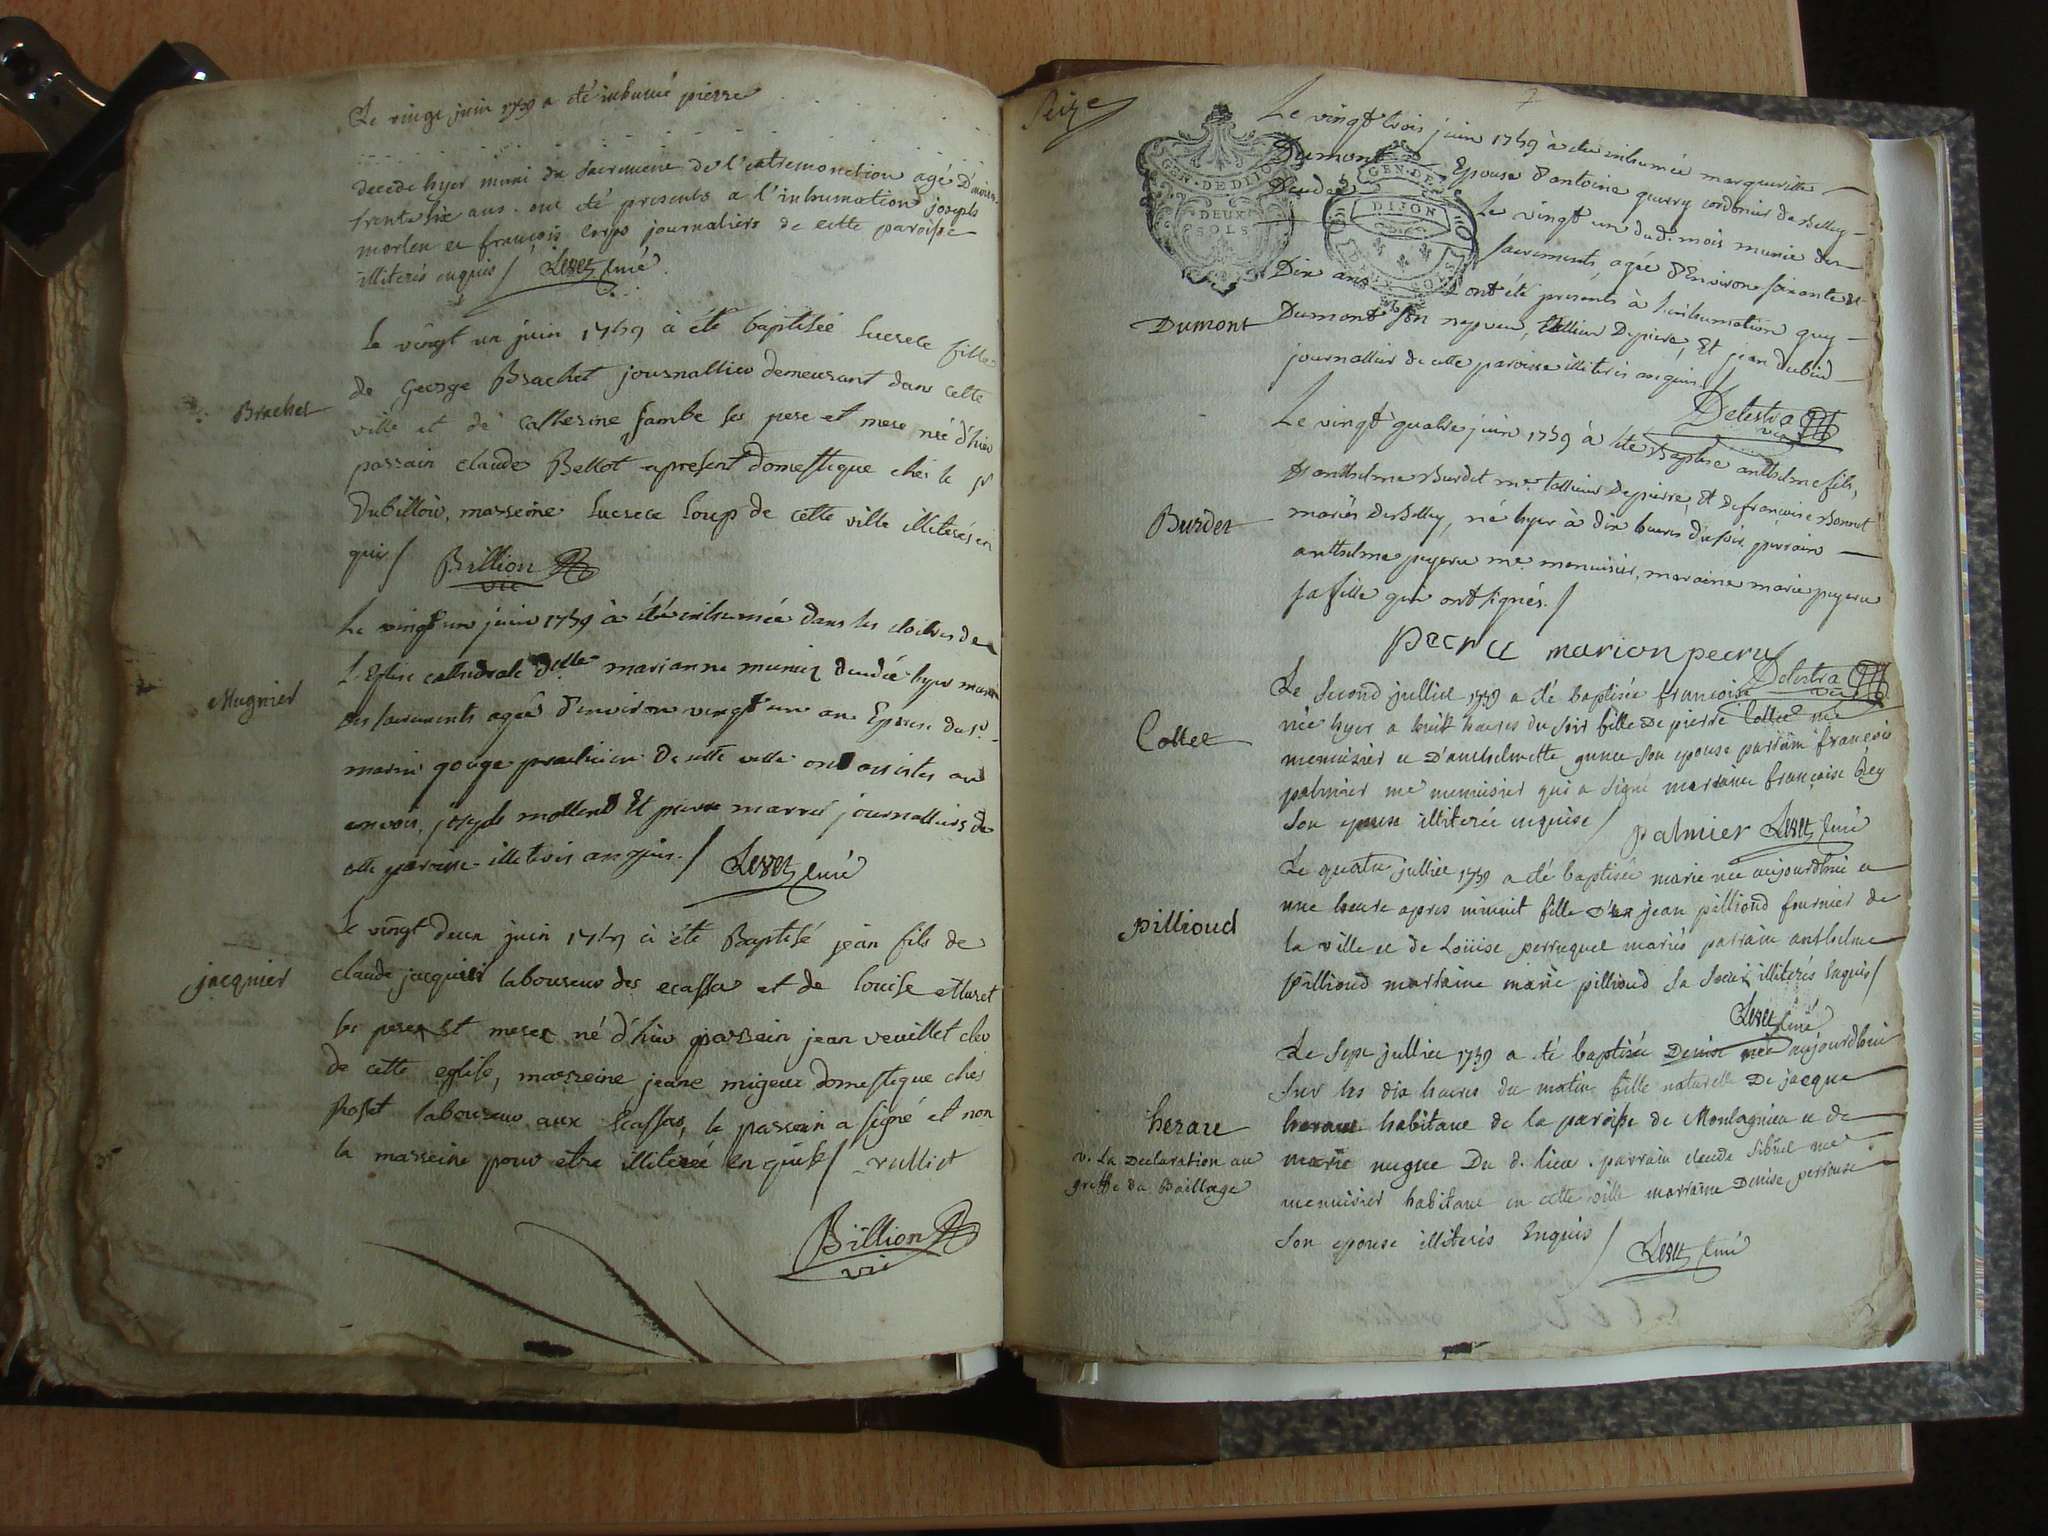 Le vingt juin 1759 a été inhumé pierre
decedé hyer muni du sacrement de l'extremonction agé D'environ
trente six ans. ont été presents a l'inhumation joseph
morlen et françois Corps journaliers de cette paroisse
illiterés enquis / Levet curé
Brachet
Le vingt un juin 1759 à été baptisée Lucrece fille
de George Brachet journallier demeurant dans cette
ville et de Catherine Jambe ses pere et mere née d'hier
parrain claude Bellot apresent domestique chés le Sr
Dubillon, marreine Lucrece Loup de cette ville illiterés en
quis / Billion
vic
Mugnier
Le vingt un juin 1759 à été inhumée dans les cloitres de
L'Eglise cathedrale Dlle marianne munier decedée hyer munie
des sacrements agée d'environ vingt un an Epouse du Sr
marin gouge praticien de cette ville ont assistés au
convoi, joseph mollend Et pierre marret journalliers de
cette paroisse illeterés enquis. / Levet curé
jacquier
Le vingt deux juin 1759 à été Baptisé jean fils de
claude jacquier laboureur des ecassas et de Louise
ses peres et meres né d'hier parrain jean veuillet clerc
de cette eglise, marreine jeane migeux domestique chés
Rosset laboureur aux Ecassas, le parrain a signé et non
la marreine pour etre illiterée enquise / vulliet
Billion
vic
Seize
7
GEN. DE DIJON
DEUX
SOLS
GEN. DE
DIJON
Le vingt trois juin 1759 à été inhumée margueritte
Dumont Epouse d'antoine querry cordonier de Belley
Decedée Le vingt un dud. mois munie des
sacrements, agée d'Environ soixante et
Dix ans ont été présents à l'inhumation guy
Dumont
Dumont son nepveu, tallieur De pierre, Et jean dubied
journallier de cette paroisse illiterés enquis. /
Delestra
vic
Le vingt quatre juin 1759 à été Baptisé anthelme fils,
Burdet
d'anthelme Burdet me tallieur De pierre, Et De françoise Bonnet
mariés De Belley, né hyer à dix heures du soir, parrain
anthelme peyeru me menuisier, maraine marie peyeru
sa fille qui ont signés. /
pecru marion pecru
Delestra
vic
Collet
Le second julliet 1759 a été baptisée françoise
née hyer a huit heures du soir fille De pierre Collet me
menuisier et D'anthelmette gunet son epouse parrain françois
palmier me menuisier qui a signé marraine françoise Bey
son epouse illiterée enquise / palmier Levet curé
pillioud
Le quatre julliet 1759 a été baptisée marie née aujourdhui a
une heure apres minuit fille D'ex jean pillioud fournier de
la ville et de Loüise perruquet mariés parrain anthelme
pillioud marraine marie pillioud sa soeur illiterés enquis /
Levet curé
Le sept julliet 1759 a été baptisée Denise née aujourdhui
sur les dix heures du matin fille naturelle De jacque
heraut
heraut habitant de la paroisse de Montagnieu et de
v. La Declaration au
greffe du Bailliage
marie nugue Du d. lieu. parrain claude sibuet me
menuisier habitant en cette ville marraine Denise perrouse
son epouse illiterés Enquis / Levet curé